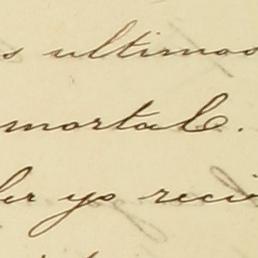 s ultimos
mortal.
ber yo reci